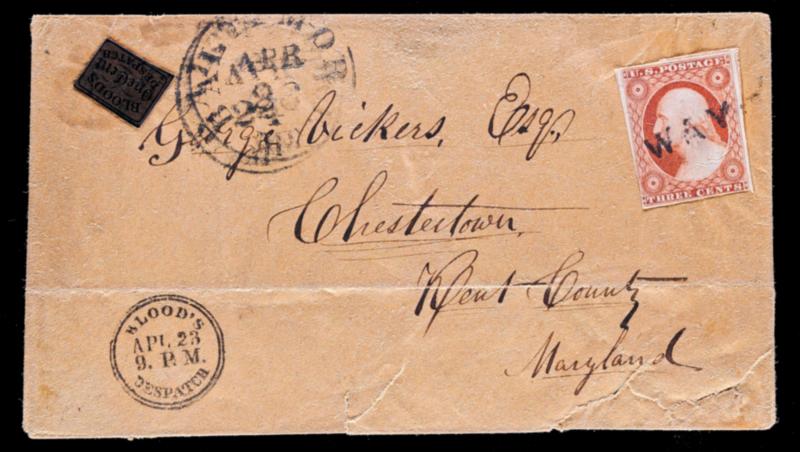 BLOOD'S
One Cent
DESPATCH
BALTIMORE
APR
U.S. POSTAGE
WAY
THREE CENTS
George Vickers, Esq,
Chestertown,
Kent County
Maryland
BLOOD'S
APL 23
9. P.M.
DESPATCH